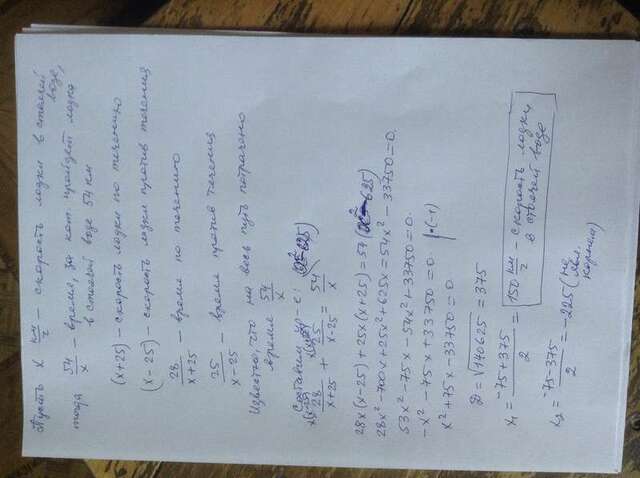 Пусть x км/ч — скорость лодки в стоячей воде,
тогда 54/x — время, за кот. пройдет лодка
в стоячей воде 54 км
(x+25) — скорость лодки по течению
(x-25) — скорость лодки против течения
28/(x+25) — время по течению
25/(x-25) — время против течения
Известно, что на весь путь потрачено
время 54/x
Составим ур-е:
28/(x+25) + 25/(x-25) = 54/x
28x(x-25)+25x(x+25)=54(x²-625)
28x²-700x+25x²+625x=54x²-33750=0.
53x²-75x-54x²+33750=0.
-x²-75x+33750=0 |·(-1)
x²+75x-33750=0
D=√140625=375
x₁=(-75+375)/2=150 км/ч - скорость лодки
в стоячей воде
x₂=(-75-375)/2=-225 (не
явл.
корнем)